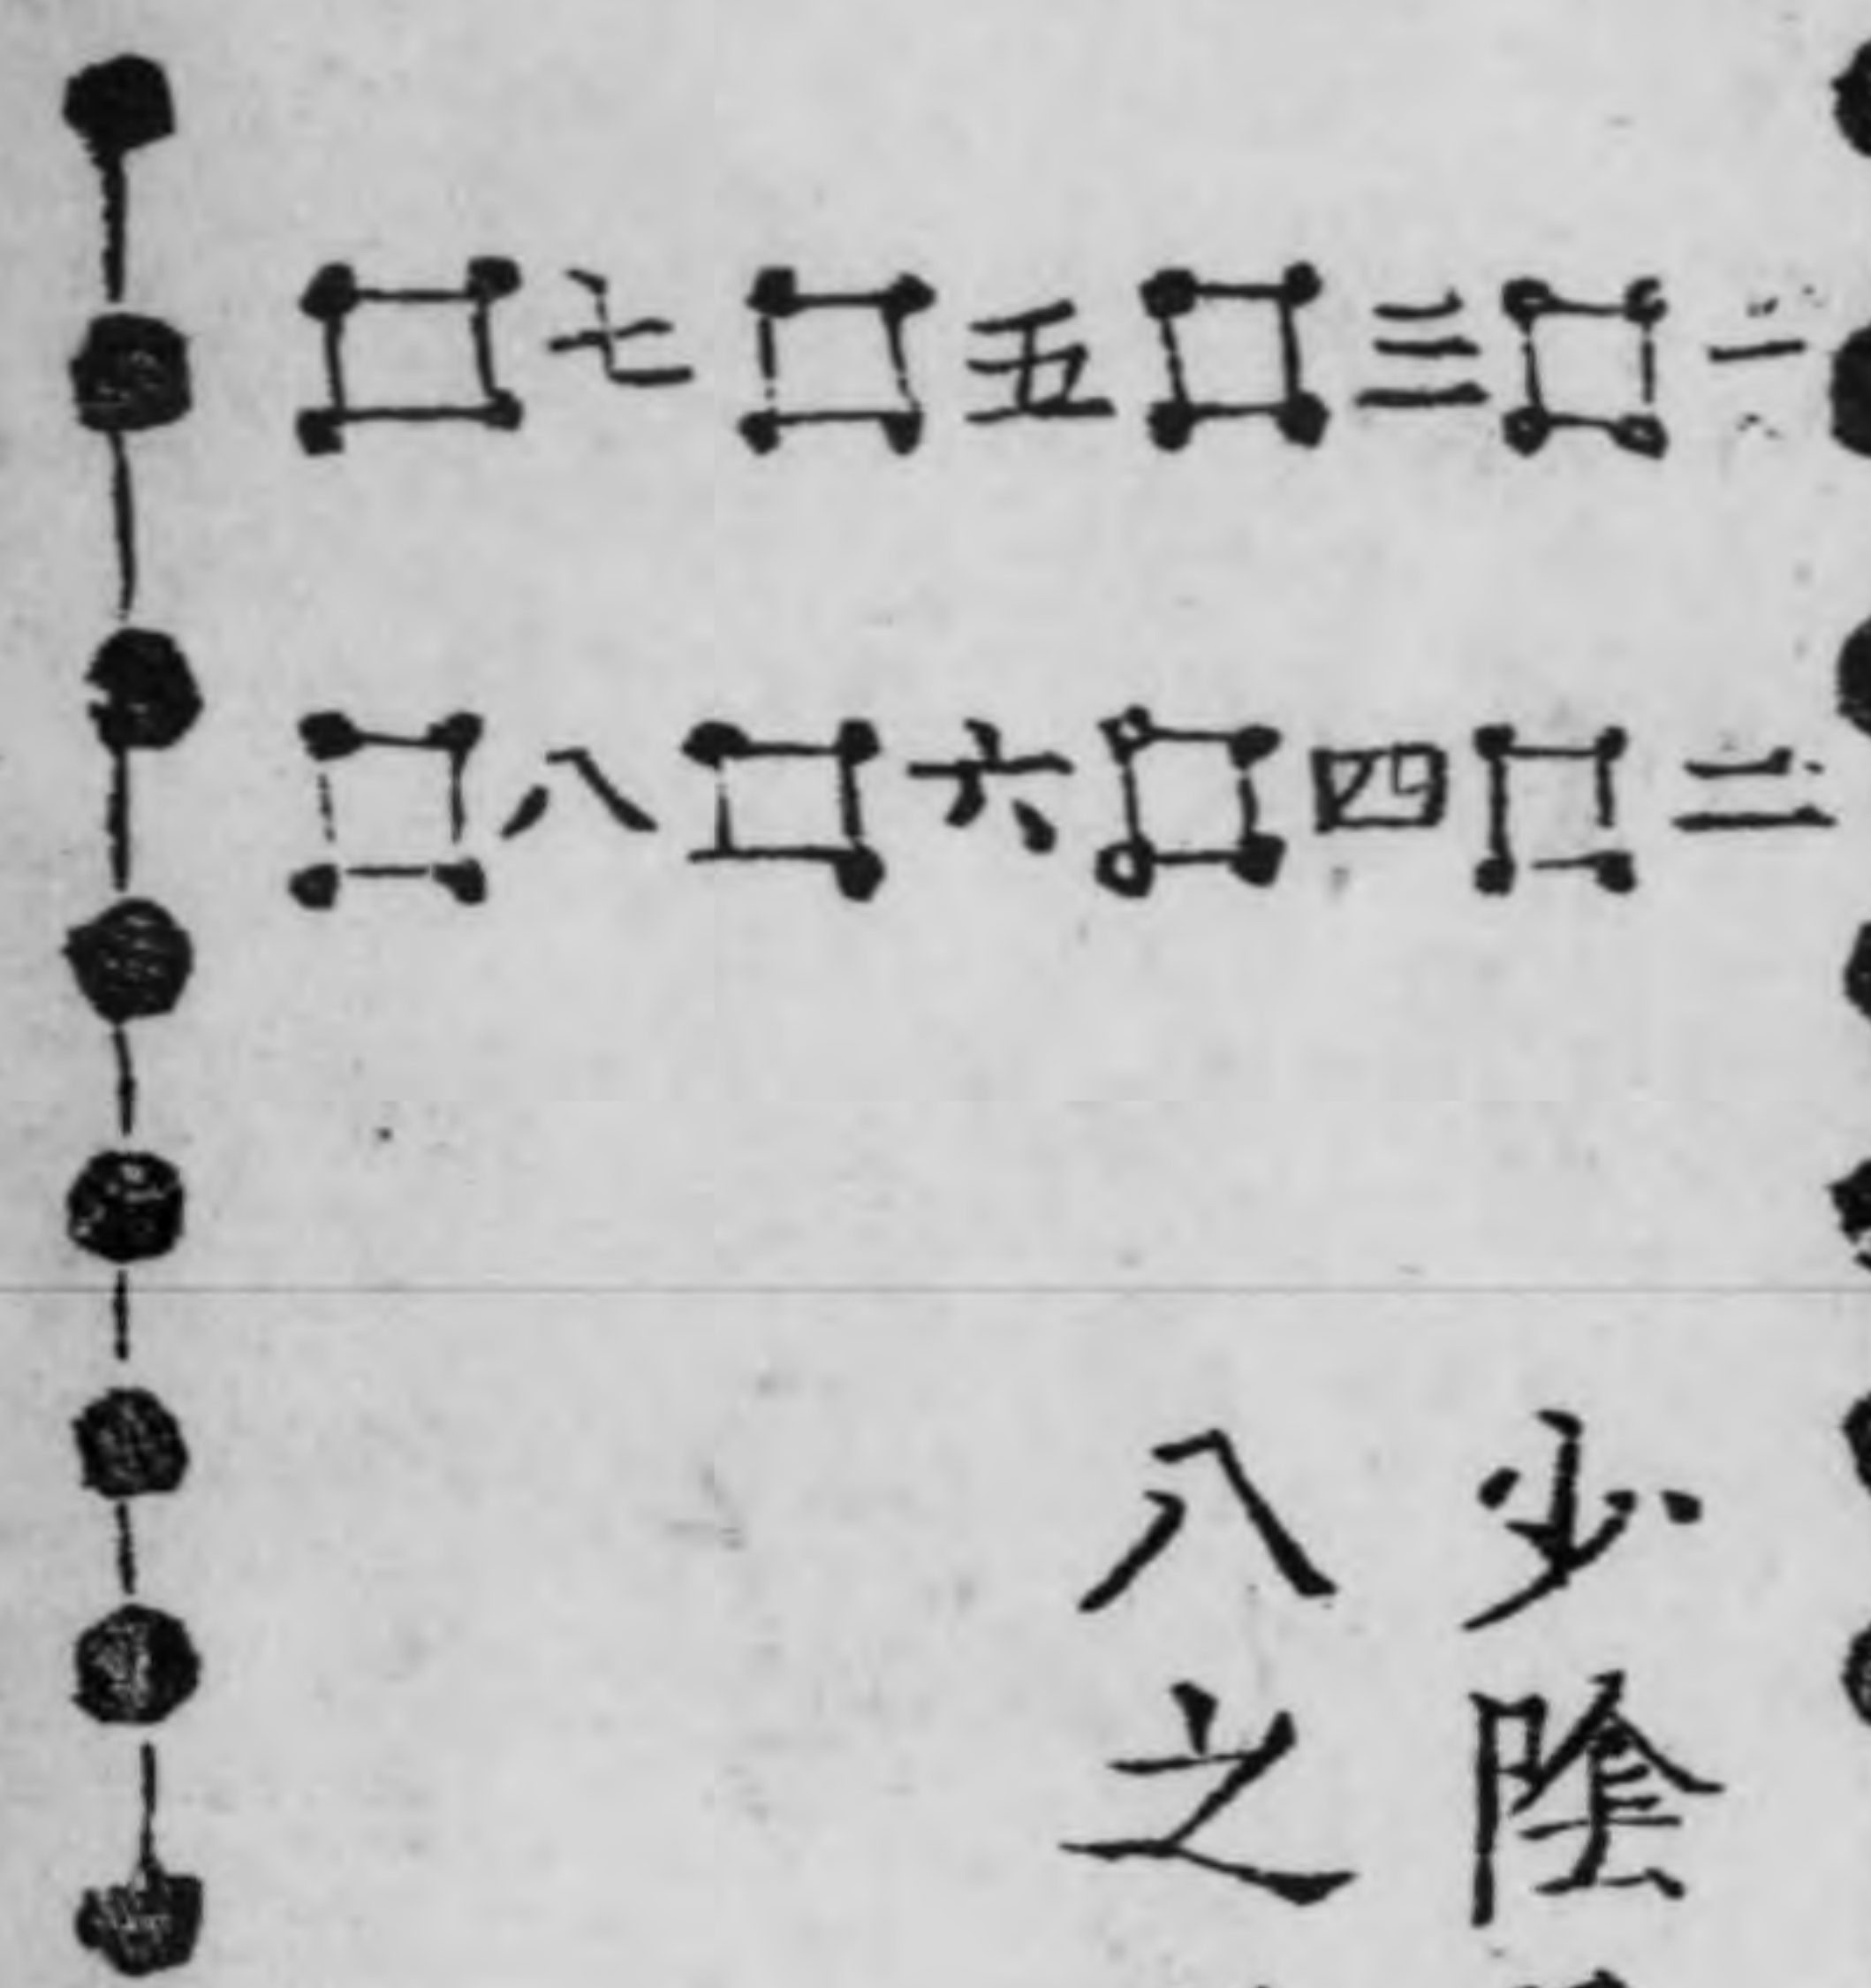 一 三 五 七
二 四 六 八
少陰
八之